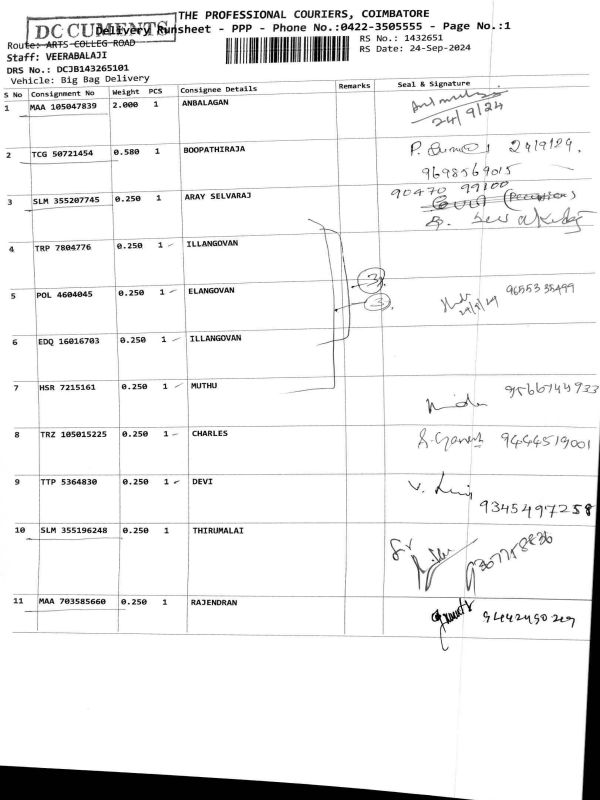 THE PROFESSIONAL COURIERS, COIMBATORE
DC CUMENTS
Delivery Runsheet - PPP - Phone No.:0422-3505555 - Page No.:1
Route: ARTS COLLEG ROAD
RS No.: 1432651
Staff: VEERABALAJI
RS Date: 24-Sep-2024
DRS No.: DCJB143265101
Vehicle: Big Bag Delivery
S No Consignment No Weight PCS Consignee Details Remarks Seal & Signature
1 MAA 105047839 2.000 1 ANBALAGAN
24/9/24
2 TCG 50721454 0.580 1 BOOPATHIRAJA 24/9/24.
9698569015
3 SLM 355207745 0.250 1 ARAY SELVARAJ 90470 99100
4 TRP 7804776 0.250 1 ILLANGOVAN
3
5 POL 4604045 0.250 1 ELANGOVAN 9655335499
3 24/9/24
6 EDQ 16016703 0.250 1 ILLANGOVAN
7 HSR 7215161 0.250 1 MUTHU 9566744933
8 TRZ 105015225 0.250 1 CHARLES S. Ganesh 9444519001
9 TTP 5364830 0.250 1 DEVI V.
9345497258
10 SLM 355196248 0.250 1 THIRUMALAI
11 MAA 703585660 0.250 1 RAJENDRAN 9442490269